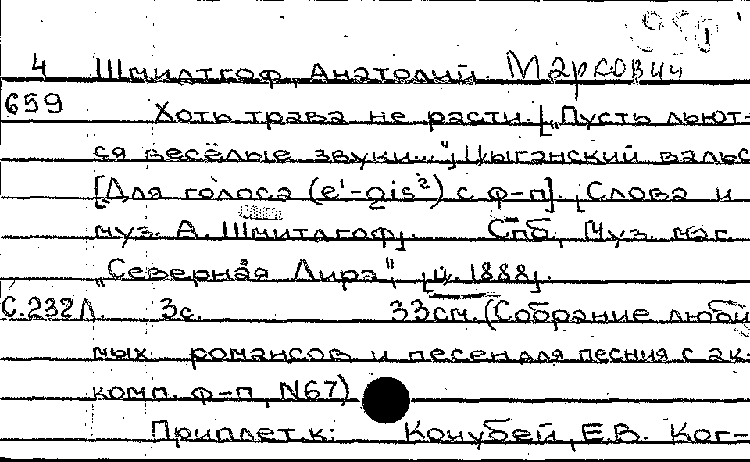 4 Шмидтгоф, Анатолий Маркович
659 Хоть трава не расти. [„Пусть льют-
ся весёлые звуки..."] Цыганский вальс
[Для голоса (e¹-gis²) с ф-п]. [Слова и
муз. А. Шмитгоф]. Спб, Муз. маг
„Северная Лира", [ц. 1888].
С.232Л. 3с. 33см. (Собрание люби
мых романсов и песен для пения с ак-
комп. ф-п, N67)
Приплет.к: Кочубей, Е.В. Ког-